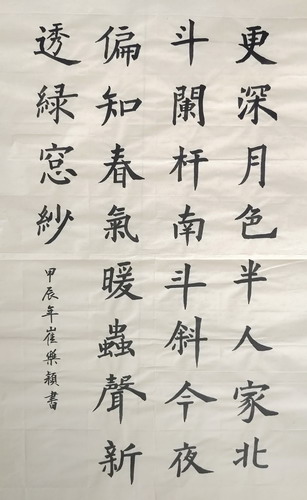 更深月色半人家北
斗闌杆南斗斜今夜
偏知春氣暖蟲聲新
透綠窓紗
甲辰年崔樂穎書